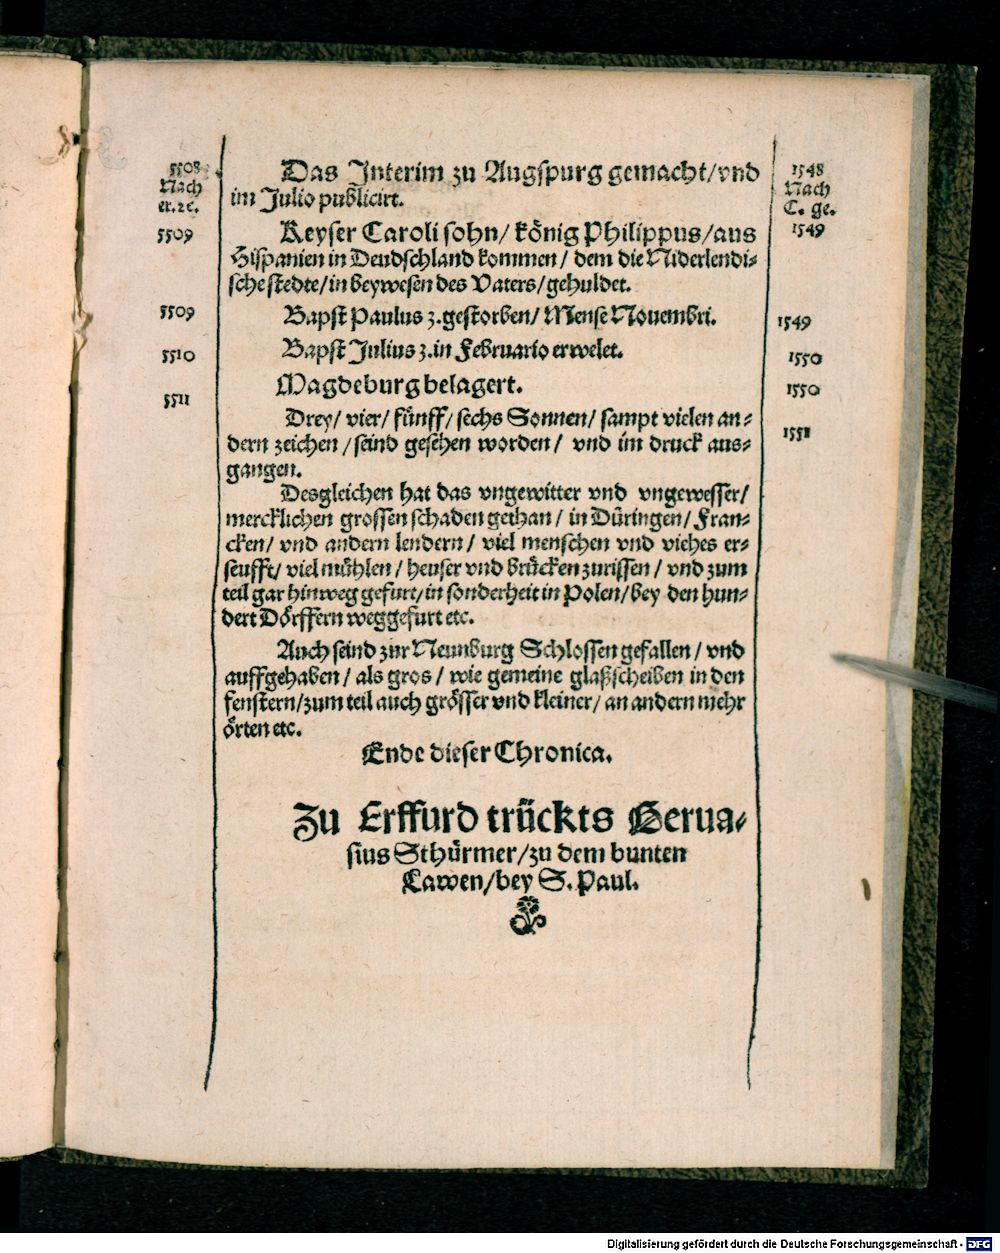 5508 Das Interim zu Augspurg gemacht/vnd 1548
Nach im Julio publicirt. Nach
er.⁊c. C. ge.
5509 Keyser Caroli sohn/ könig Philippus/aus 1549
Hispanien in Deudschland kommen/ dem die Niderlendi⸗
sche stedte/in beywesen des Vaters/gehuldet.
5509 Bapst Paulus 3.gestorben/ Mense Nouembri. 1549
5510 Bapst Julius 3.in Februario erwelet. 1550
Magdeburg belagert. 1550
5511 Drey/ vier/ fünff/ sechs Sonnen/ sampt vielen an⸗ 1551
dern zeichen /seind gesehen worden/ vnd im druck aus⸗
gangen.
Desgleichen hat das vngewitter vnd vngewesser/
mercklichen grossen schaden gethan/ in Düringen/ Fran⸗
cken/ vnd andern lendern/ viel menschen vnd viehes er⸗
seufft/ viel mühlen/ heuser vnd brücken zurissen/ vnd zum
teil gar hinweg gefurt/in sonderheit in Polen/bey den hun⸗
dert Dörffern weggefurt etc.
Auch seind zur Neunburg Schlossen gefallen/ vnd
auffgehaben/ als gros/ wie gemeine glaßscheiben in den
fenstern/zum teil auch grösser vnd kleiner/ an andern mehr
örten etc.
Ende dieser Chronica.
Zu Erffurd trückts Gerua⸗
sius Sthürmer/zu dem bunten
Lawen/bey S. Paul.
Digitalisierung gefördert durch die Deutsche Forschungsgemeinschaft - DFG